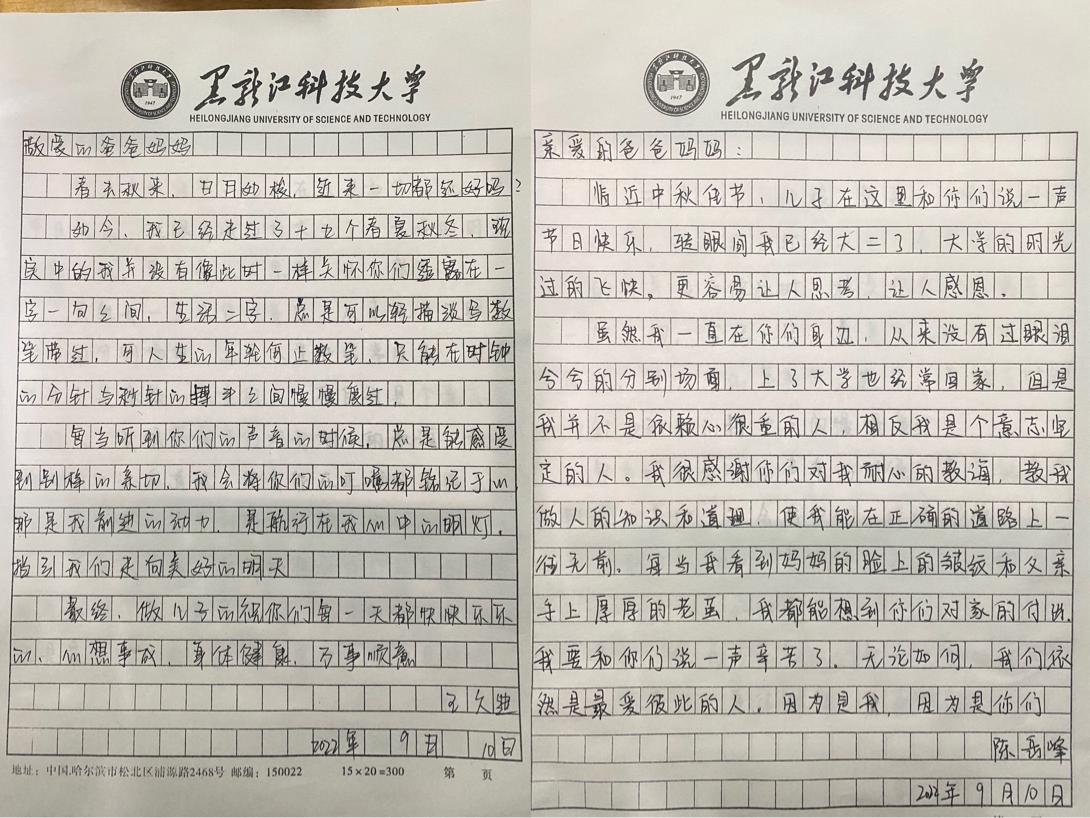 黑龙江科技大学
HEILONGJIANG UNIVERSITY OF SCIENCE AND TECHNOLOGY
敬爱的爸爸妈妈
春去秋来，日月如梭，近来一切都还好吗？
如今，我已经走过了十九个春夏秋冬，现
实中的我并没有像此时一样关怀你们蕴露在一
字一句之间，生活二字，总是可以轻描淡写数
笔带过，可人生的年轮何止数笔，只能在时钟
的分针与秒针的转来之间慢慢度过，
每当听到你们的声音的时候，总是能感受
到别样的亲切，我会将你们的叮嘱都铭记于心，
那是我前进的动力，是航行在我心中的明灯。
指引我们走向美好的明天
最终，做儿子的祝你们每一天都快快乐乐
的、心想事成，身体健康，万事顺意
王
2022年 9月 10日
地址：中国.哈尔滨市松北区浦源路2468号 邮编：150022 15×20=300 第 页
黑龙江科技大学
HEILONGJIANG UNIVERSITY OF SCIENCE AND TECHNOLOGY
亲爱的爸爸妈妈：
临近中秋佳节，儿子在这里和你们说一声
节日快乐，转眼间我已经大二了，大学的时光
过的飞快。更容易让人思考，让人感恩。
虽然我一直在你们身边，从来没有过眼泪
兮兮的分别场面，上了大学也经常回家，但是
我并不是依赖心很重的人，相反我是个意志坚
定的人。我很感谢你们对我耐心的教诲，教我
做人的知识和道理，使我能在正确的道路上一
往无前。每当我看到妈妈的脸上的皱纹和父亲
手上厚厚的老茧，我都能想到你们对家的付出，
我要和你们说一声辛苦了。无论如何，我们依
然是最爱彼此的人。因为是我，因为是你们
陈岳峰
2022年 9月10日